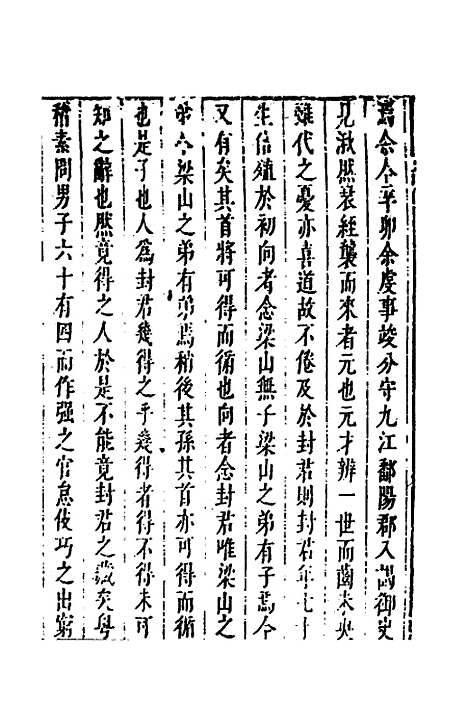 為余今辛卯余虔事竣分守九江鄱陽郡入謁御史
見湫然裝絰襲而來者元也元才辨一世而齒未央
難代之憂亦喜道故不倦及於封君則封君年七十
生信殖於初向者念梁山無子梁山之弟有子焉今
又有矣其首將可得而循也向者念封君唯梁山之
弟今梁山之弟有弟焉稍後其孫其首亦可得而循
也是子也人為封君幾得之乎幾得者得不得未可
知之辭也然竟得之人於是不能竟封君之識矣粤
稽素問男子六十有四而作强之官怠伎巧之出窮